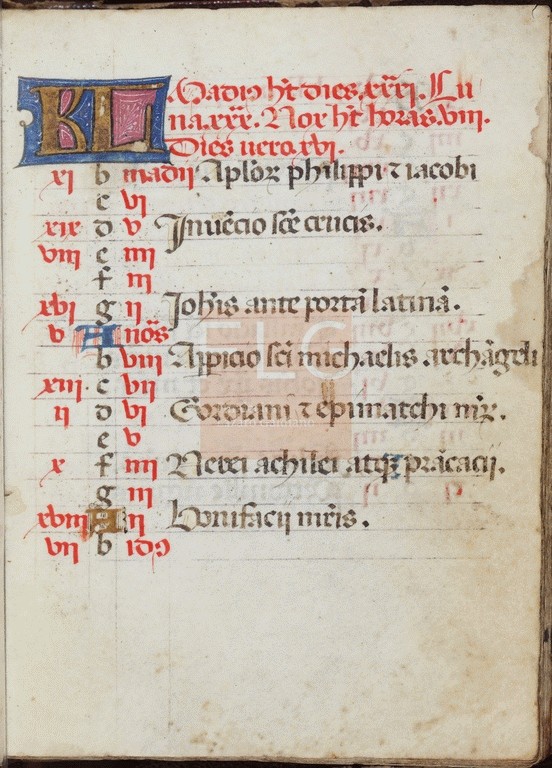 KL Madiꝰ ht dies.xxxi. Lu
na.xxx. Nox ht horas.viii.
Dies uero.xvi.
xi b madii Aplor philippi ⁊ iacobi
c vi
xix d v Inuēcio scē crucis.
viii e iiii
f iii
xvi g ii Johis ante portā latinā.
v A noās
b viii Appicio scī michaelis archāgeli
xiii c vii
ii d vi Gordiani ⁊ epimatchi mꝝ.
e v
x f iiii Nerei achilei atqꝫ prācacii.
g iii
xviii A ii Bonifacii mris.
vii b idꝰ